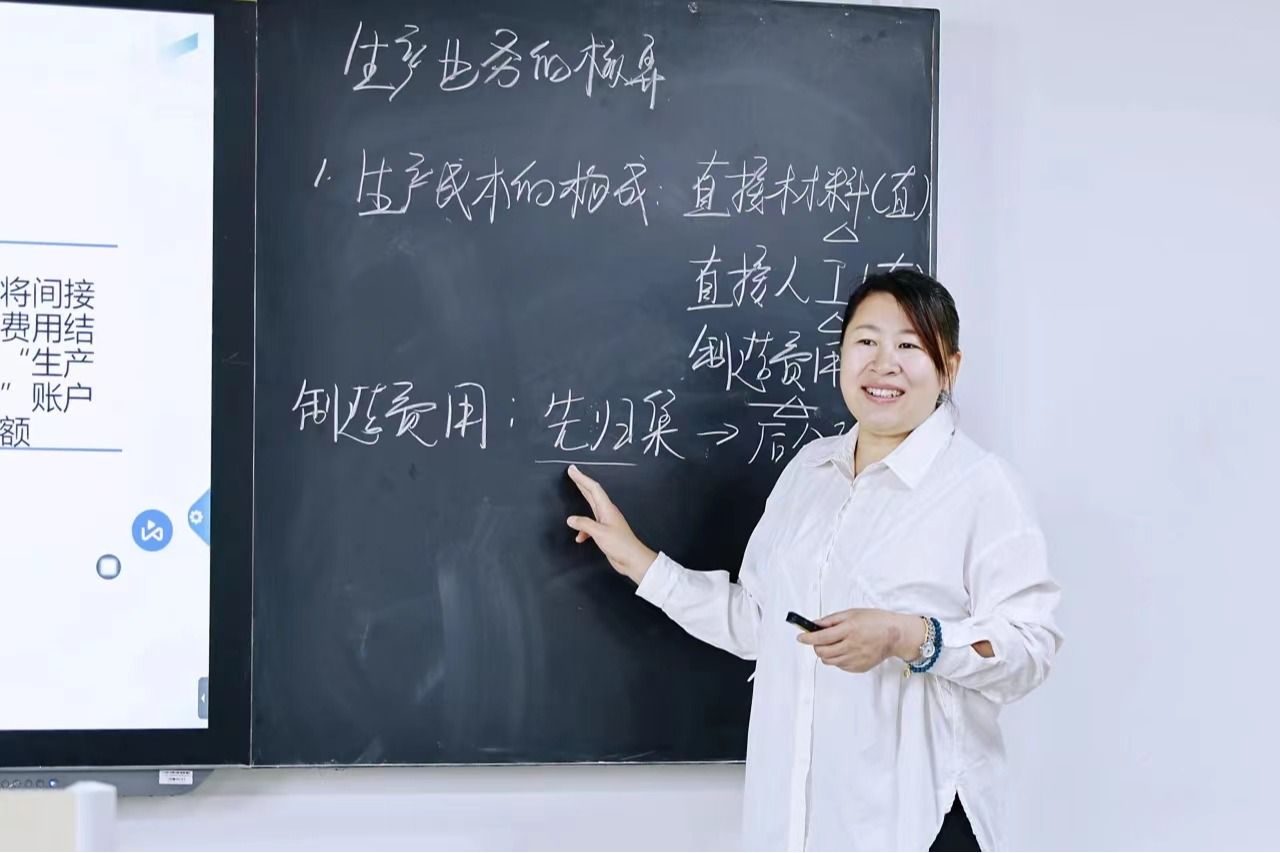 将间接
费用结
“生产
”账户
额
生产业务的核算
1. 生产成本的构成：直接材料(直)
直接人工(直)
制造费用
制造费用：先归集→后分